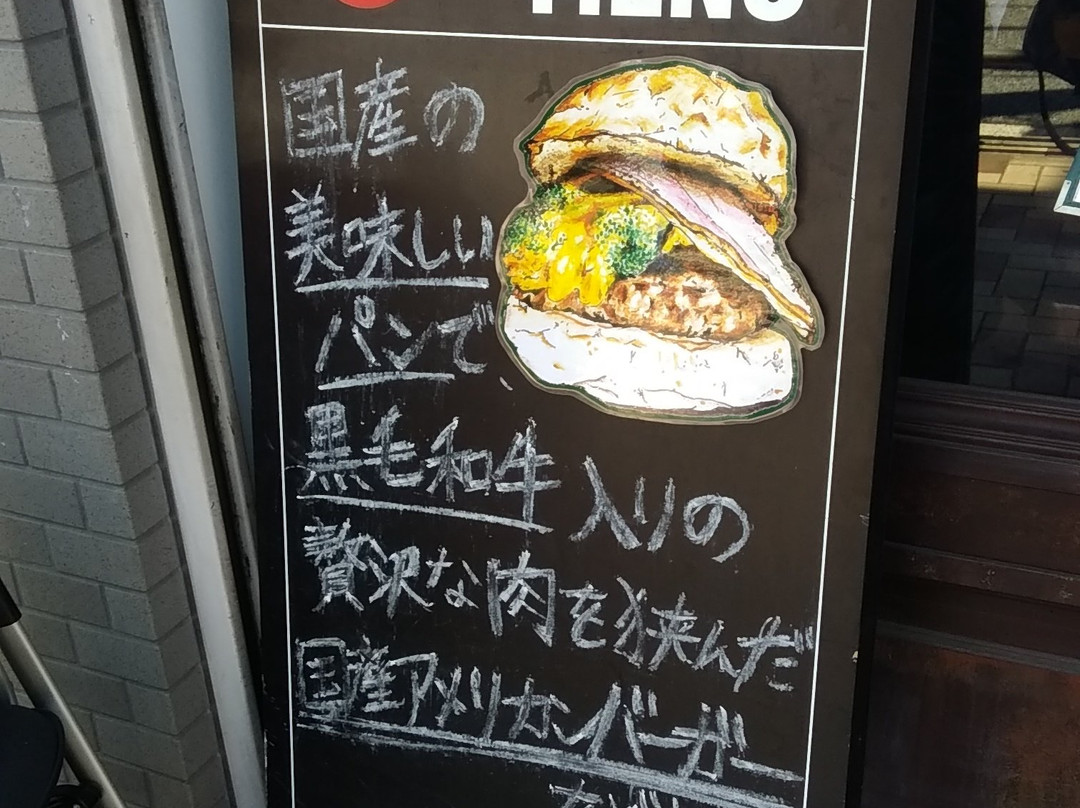 MENU
国産の
美味しい
パンで
黒毛和牛入りの
贅沢な肉を挟んだ
国産アメリカンバーガー